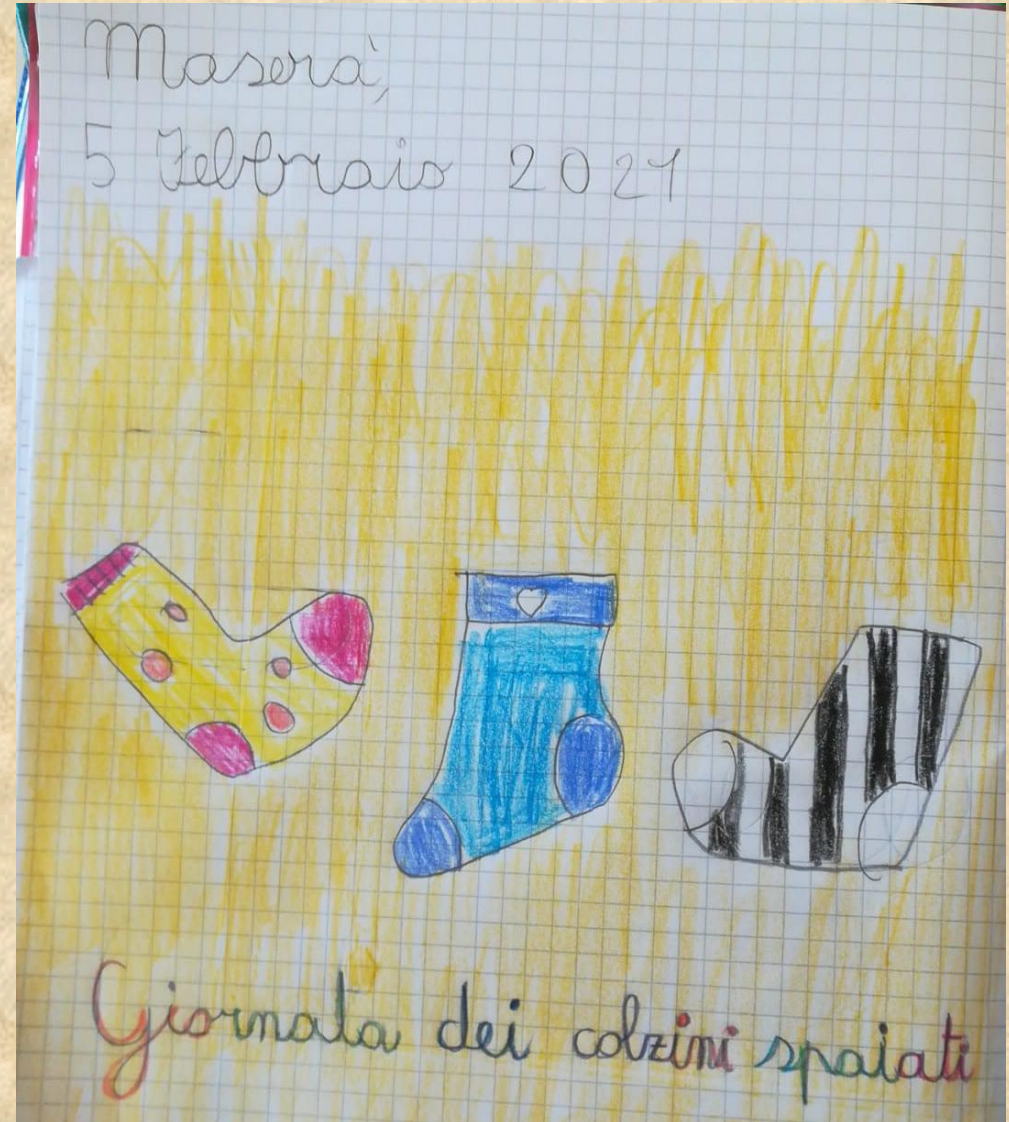 Maserà,
5 Febbraio 2021
Giornata dei calzini spaiati